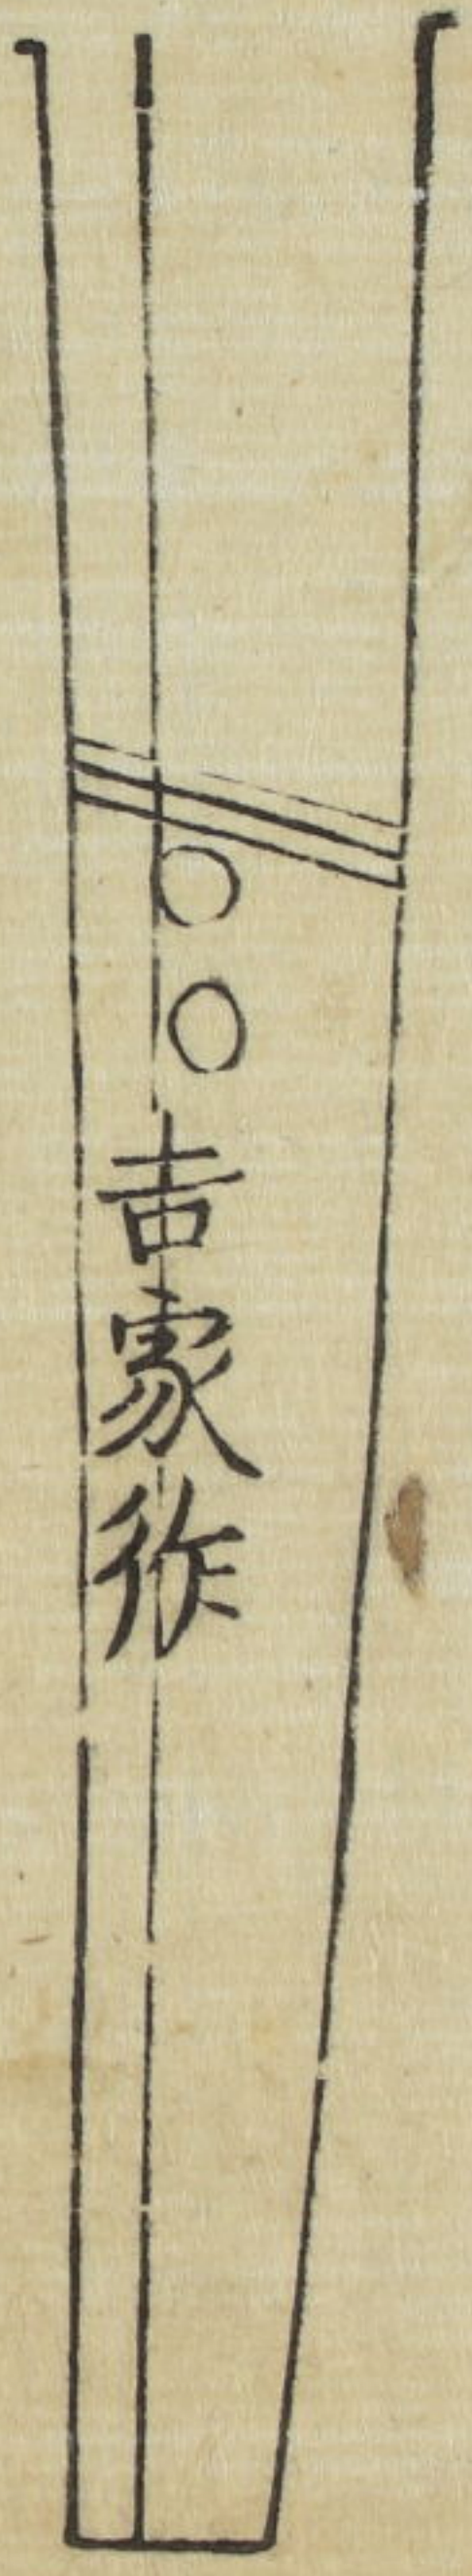 吉家作